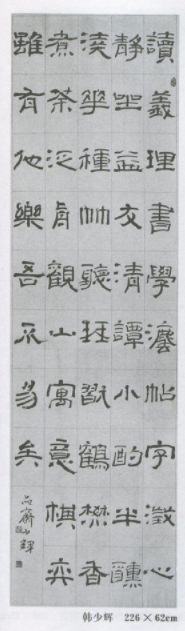 讀義理書學灋帖字澂心
靜坐益友清譚小酌半醺
澆華種竹聽琴翫鶴焚香
煮茶泛舟觀山寓意棋弈
雖有他樂吾不易矣
韩少辉 226×62cm